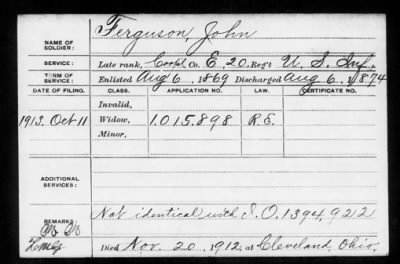 NAME OF SOLDIER: Ferguson, John
SERVICE: Late rank, Corpl, Co. E, 20 Reg't U. S. Inf.
TERM OF SERVICE: Enlisted Aug 6, 1869 Discharged Aug. 6, 1874
DATE OF FILING. CLASS. APPLICATION NO. LAW. CERTIFICATE NO.
Invalid,
1913. Oct 11 Widow, 1.015.898 R.E.
Minor,
ADDITIONAL SERVICES:
Not identical with S.O. 1394,922
REMARKS:
Died Nov. 20, 1912, at Cleveland, Ohio.